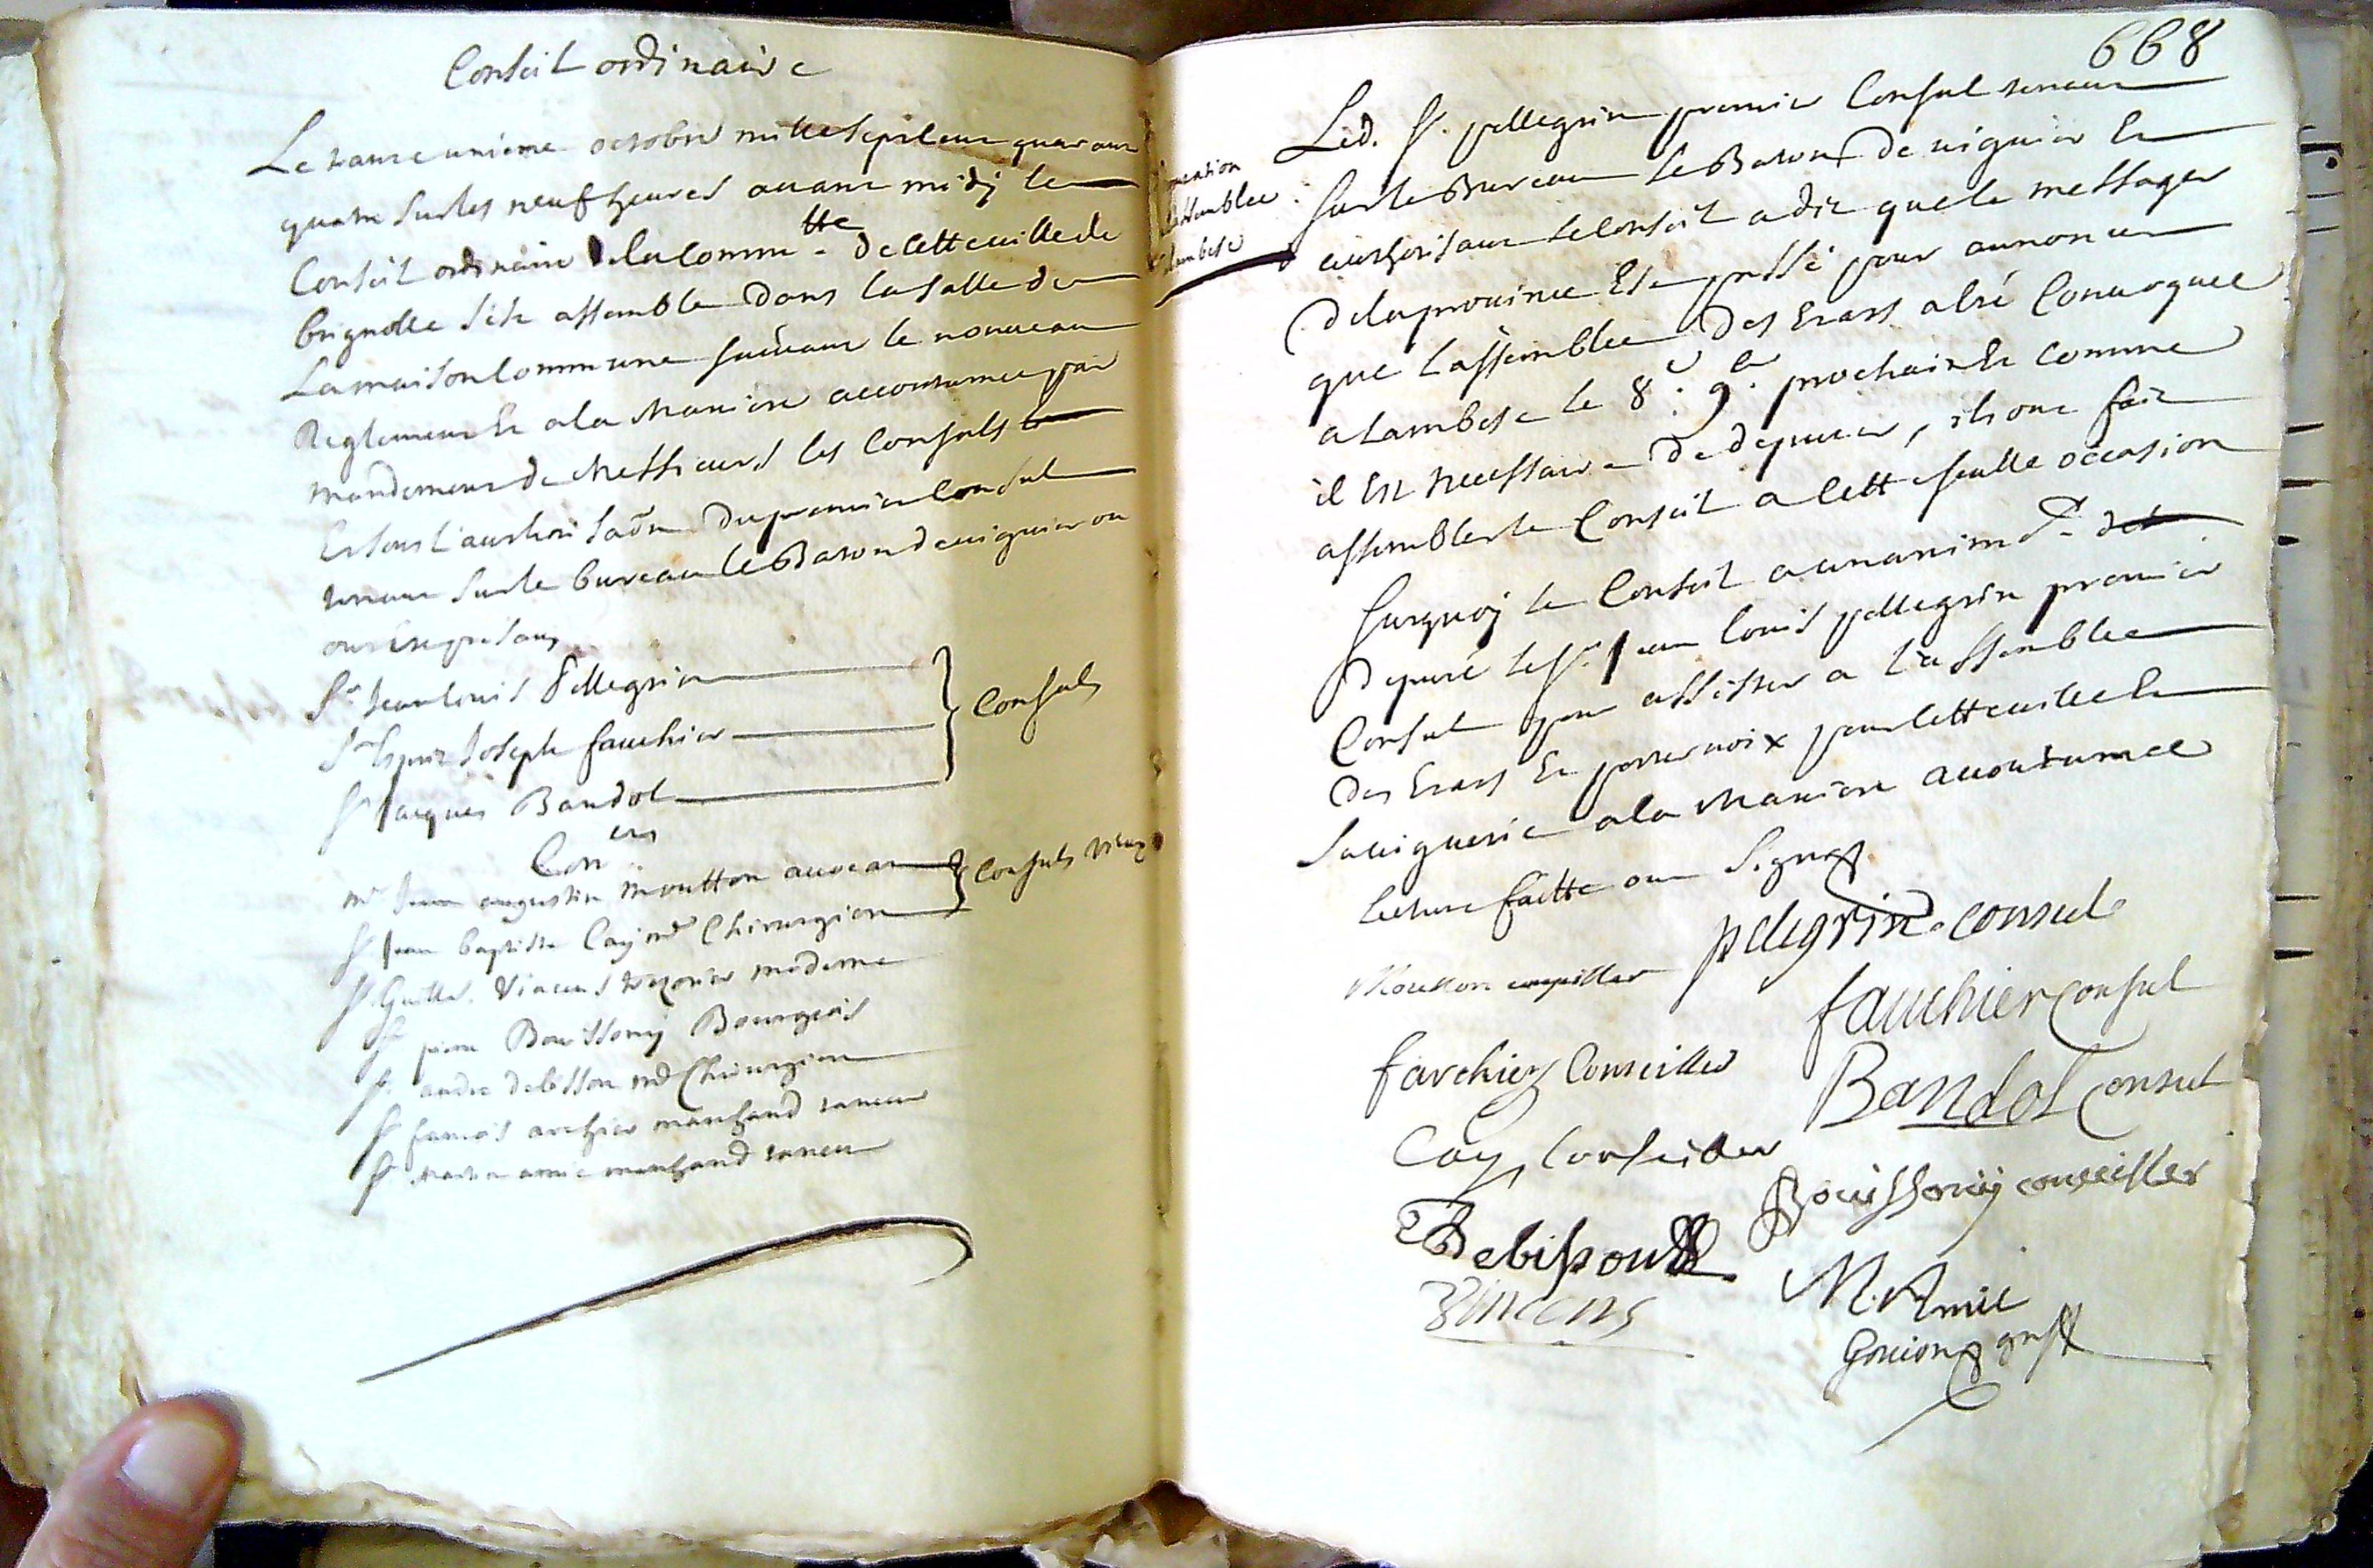 Conseil ordinaire
Le trante unieme octobre mille sept cent quarante
quatre sur les neuf heures avant midy le
Conseil ordinaire de la Commu.tte de cette ville de
brignolle s'est assemblé dans la salle de
La maison Commune suivant le nouveau
Reglement Et a la Maniere accoutumée par
mandement de Messieurs les Consuls
Et sous l'authorisaõn du premier Consul
tenant sur le bureau le Baton de viguier ou
ont été presans
Sr. Jean louis Pellegrin
Sr Esprit Joseph fauchier
Sr Jacques Bandol
Consuls
Con.ers
Mr Jean augustin Moutton avocat
Sr Jean baptiste Cay md Chirurgien
Consuls vieux
Sr. Guille. Vincens trezorier moderne
Sr pierre Bouissony Bourgeois
Sr. andre debisson md Chirurgien
Sr francois archier marchand taneur
Sr Martin amic marchand taneur
668
l'assemblee
Lambesc
Led. Sr. pellegrin premier Consul tenant
sur le Bureau le Baton de viguier Et
authorisant le Conseil a dit que le messager
de la province Est passé pour annoncer
que l'assemblee des Etats a été Convoquee
a Lambesc le 8e. 9bre. prochain Et comme
il Est necessaire de deputer, ils ont fait
assembler le Conseil a cette seulle occasion
surquoy le Conseil a unanimt.
deputé le Sr. Jean louis pellegrin premier
Consul pour assister a l'assemblee
des Etats Et porter voix pour cette ville Et
sa viguerie a la Maniere accoutumee
lecture faitte ont Signes
pelegrin consul
Moutton conseiller
fauchier consul
farchier Conseiller
Bandol Consul
Cay Conseiller
Bouissony conseiller
Debisson
M. Amic
Vincens